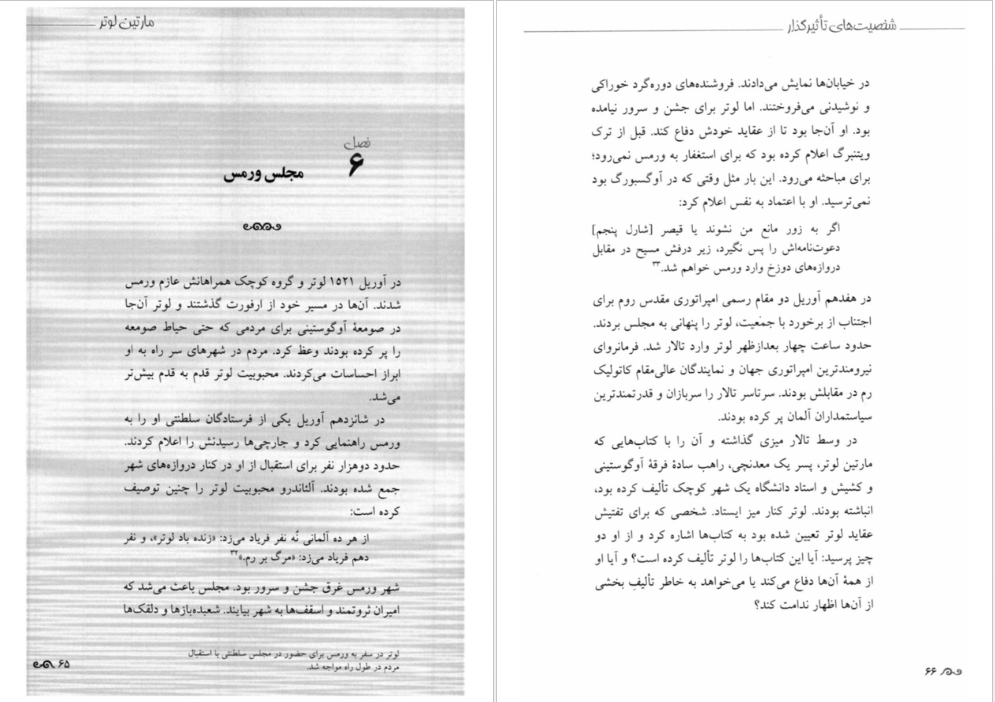 مارتین لوتر
فصل
۶
مجلس ورمس
در آوریل ۱۵۲۱ لوتر و گروه کوچک همراهانش عازم ورمس
شدند. آن‌ها در مسیر خود از ارفورت گذشتند و لوتر آن‌جا
در صومعهٔ آوگوستینی برای مردمی که حتی حیاط صومعه
را پر کرده بودند وعظ کرد. مردم در شهرهای سر راه به او
ابراز احساسات می‌کردند. محبوبیت لوتر قدم به قدم بیش‌تر
می‌شد.
در شانزدهم آوریل یکی از فرستادگان سلطنتی او را به
ورمس راهنمایی کرد و جارچی‌ها رسیدنش را اعلام کردند.
حدود دوهزار نفر برای استقبال از او در کنار دروازه‌های شهر
جمع شده بودند. آلئاندرو محبوبیت لوتر را چنین توصیف
کرده است:
از هر ده آلمانی نُه نفر فریاد می‌زد: «زنده باد لوتر»، و نفر
دهم فریاد می‌زد: «مرگ بر رم.»۳۲
شهر ورمس غرق جشن و سرور بود. مجلس باعث می‌شد که
امیران ثروتمند و اسقف‌ها به شهر بیایند. شعبده‌بازها و دلقک‌ها
لوتر در سفر به ورمس برای حضور در مجلس سلطنتی با استقبال
مردم در طول راه مواجه شد.
۶۵
شخصیت‌های تأثیرگذار
در خیابان‌ها نمایش می‌دادند. فروشنده‌های دوره‌گرد خوراکی
و نوشیدنی می‌فروختند. اما لوتر برای جشن و سرور نیامده
بود. او آن‌جا بود تا از عقاید خودش دفاع کند. قبل از ترک
ویتنبرگ اعلام کرده بود که برای استغفار به ورمس نمی‌رود؛
برای مباحثه می‌رود. این بار مثل وقتی که در آوگسبورگ بود
نمی‌ترسید. او با اعتماد به نفس اعلام کرد:
اگر به زور مانع من نشوند یا قیصر [شارل پنجم]
دعوت‌نامه‌اش را پس نگیرد، زیر درفش مسیح در مقابل
دروازه‌های دوزخ وارد ورمس خواهم شد.۳۳
در هفدهم آوریل دو مقام رسمی امپراتوری مقدس روم برای
اجتناب از برخورد با جمعیت، لوتر را پنهانی به مجلس بردند.
حدود ساعت چهار بعدازظهر لوتر وارد تالار شد. فرمانروای
نیرومندترین امپراتوری جهان و نمایندگان عالی‌مقام کاتولیک
رم در مقابلش بودند. سرتاسر تالار را سربازان و قدرتمندترین
سیاستمداران آلمان پر کرده بودند.
در وسط تالار میزی گذاشته و آن را با کتاب‌هایی که
مارتین لوتر، پسر یک معدنچی، راهب سادهٔ فرقهٔ آوگوستینی
و کشیش و استاد دانشگاه یک شهر کوچک تألیف کرده بود،
انباشته بودند. لوتر کنار میز ایستاد. شخصی که برای تفتیش
عقاید لوتر تعیین شده بود به کتاب‌ها اشاره کرد و از او دو
چیز پرسید: آیا این کتاب‌ها را لوتر تألیف کرده است؟ و آیا او
از همهٔ آن‌ها دفاع می‌کند یا می‌خواهد به خاطر تألیفِ بخشی
از آن‌ها اظهار ندامت کند؟
۶۶